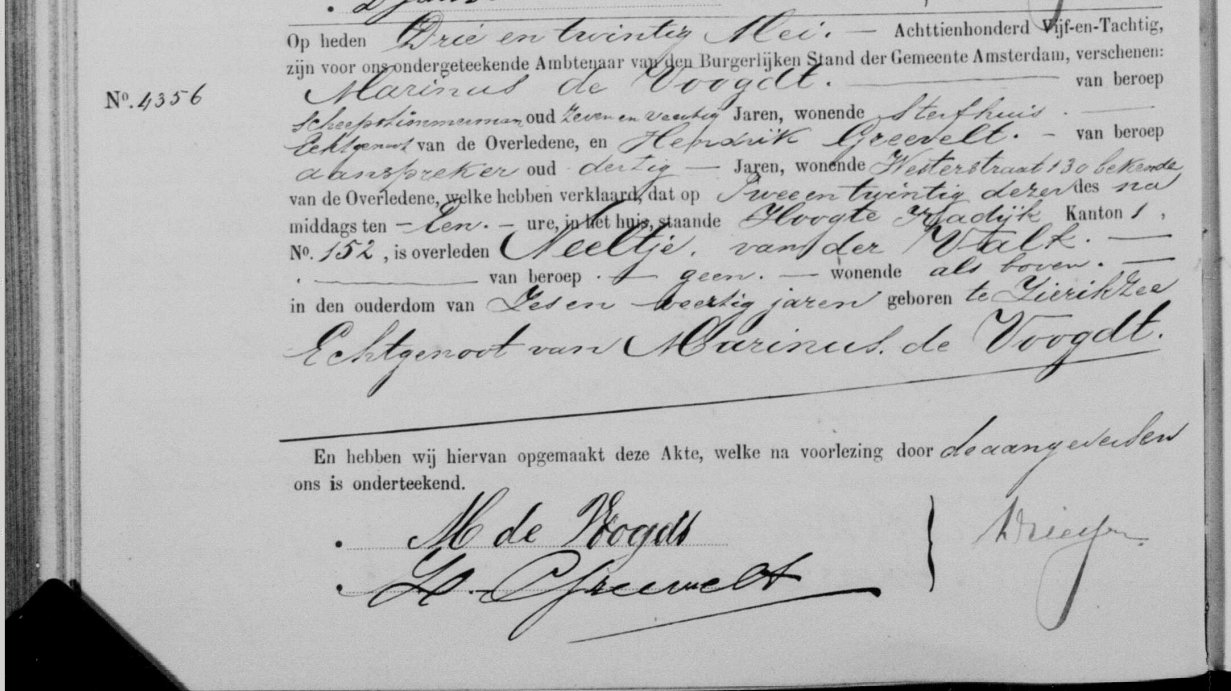 Op heden Drie en twintig Mei. — Achttienhonderd Vijf-en-Tachtig,
zijn voor ons ondergeteekende Ambtenaar van den Burgerlijken Stand der Gemeente Amsterdam, verschenen:
Nº. 4356
Marinus de Voogdt. — van beroep
scheepstimmerman oud zeven en veertig Jaren, wonende Sterfhuis. —
Echtgenoot van de Overledene, en Hendrik Greevelt. — van beroep
aanspreker oud dertig — Jaren, wonende Westerstraat 130 bekende
van de Overledene, welke hebben verklaard, dat op Twee en twintig dezer des na
middags ten — Een. — ure, in het huis, staande Hoogte Kadijk Kanton 1,
Nº. 152, is overleden Neeltje. van der Valk. —
. — van beroep . — geen. — wonende als boven. —
in den ouderdom van Zes en veertig jaren geboren te Zierikzee
Echtgenoot van Marinus. de Voogdt.
En hebben wij hiervan opgemaakt deze Akte, welke na voorlezing door de aangevers en
ons is onderteekend.
M de Voogdt
H. Greevelt